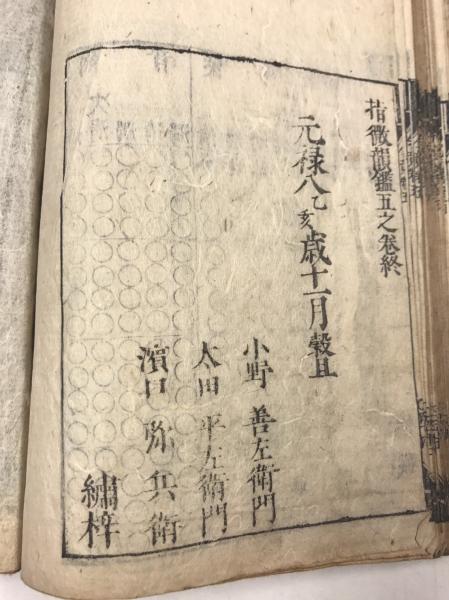 指微韻鑑五之卷終
元禄八乙亥歳十一月穀旦
小野 善左衛門
太田 平左衛門
濱口 弥兵衛
繍梓